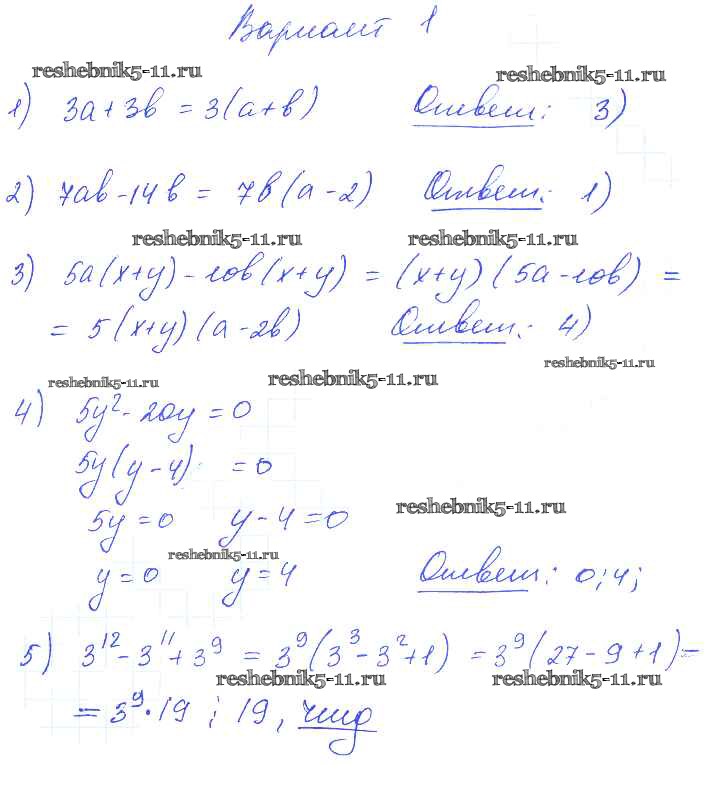 Вариант 1
reshebnik5-11.ru reshebnik5-11.ru
1) 3a+3b = 3(a+b) Ответ: 3)
2) 7ab-14b = 7b(a-2) Ответ: 1)
reshebnik5-11.ru reshebnik5-11.ru
3) 5a(x+y)-10b(x+y) = (x+y)(5a-10b) =
= 5(x+y)(a-2b) Ответ: 4)
reshebnik5-11.ru reshebnik5-11.ru reshebnik5-11.ru
4) 5y²-20y=0
5y(y-4) =0
reshebnik5-11.ru
5y=0 y-4=0
reshebnik5-11.ru
y=0 y=4 Ответ: 0;4;
5) 3¹²-3¹¹+3⁹ = 3⁹(3³-3²+1) =3⁹(27-9+1)=
reshebnik5-11.ru reshebnik5-11.ru
=3⁹·19 ⋮ 19, чтд